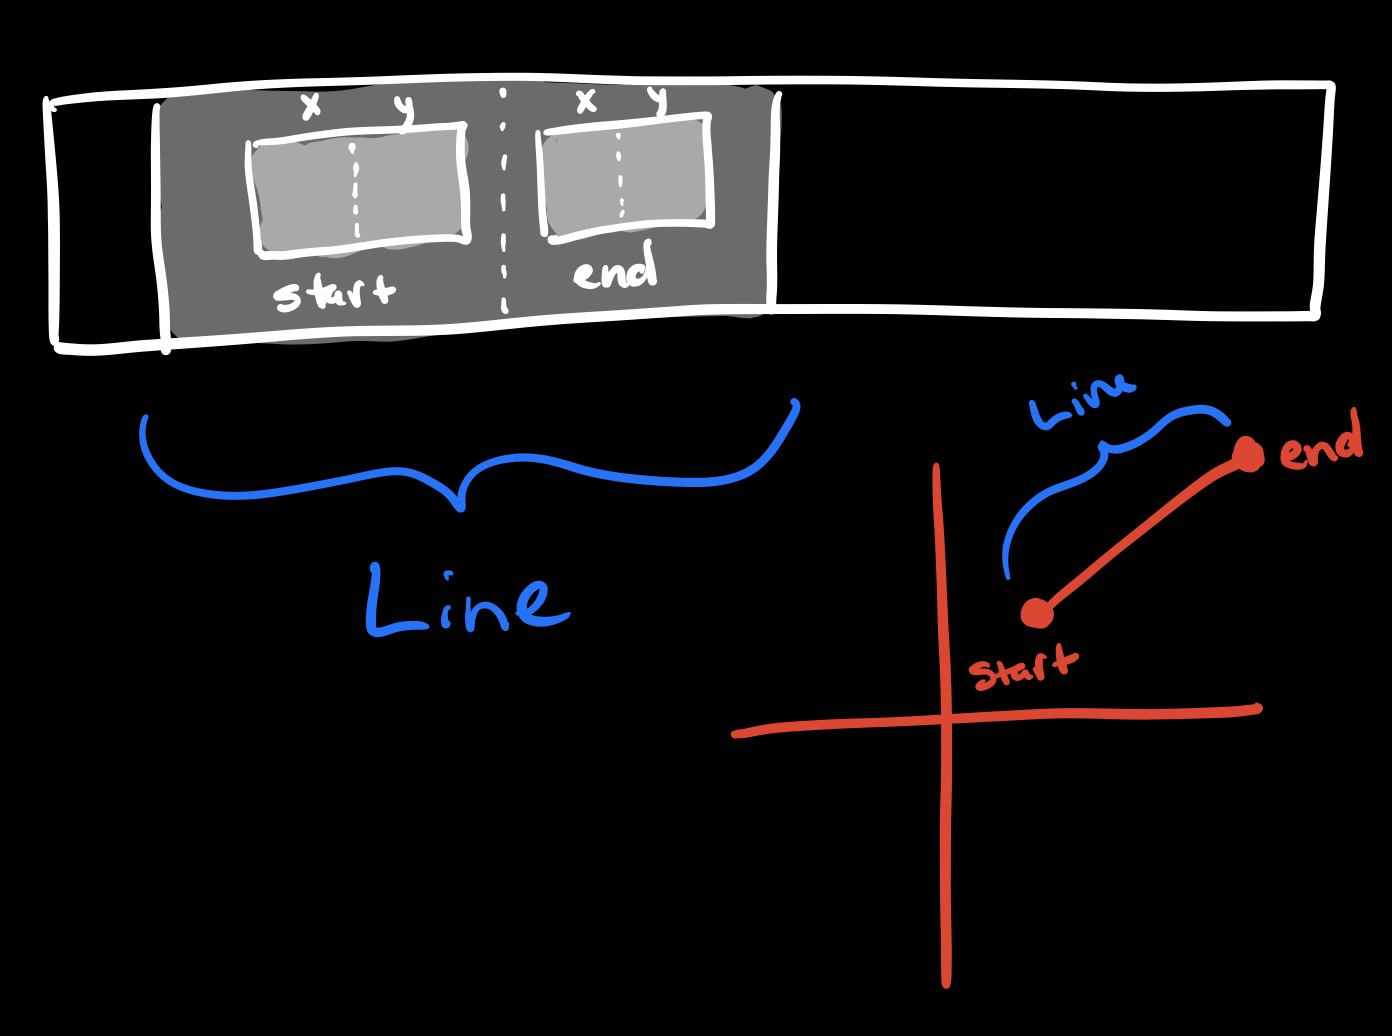 x y x y
start end
Line
Line
end
start